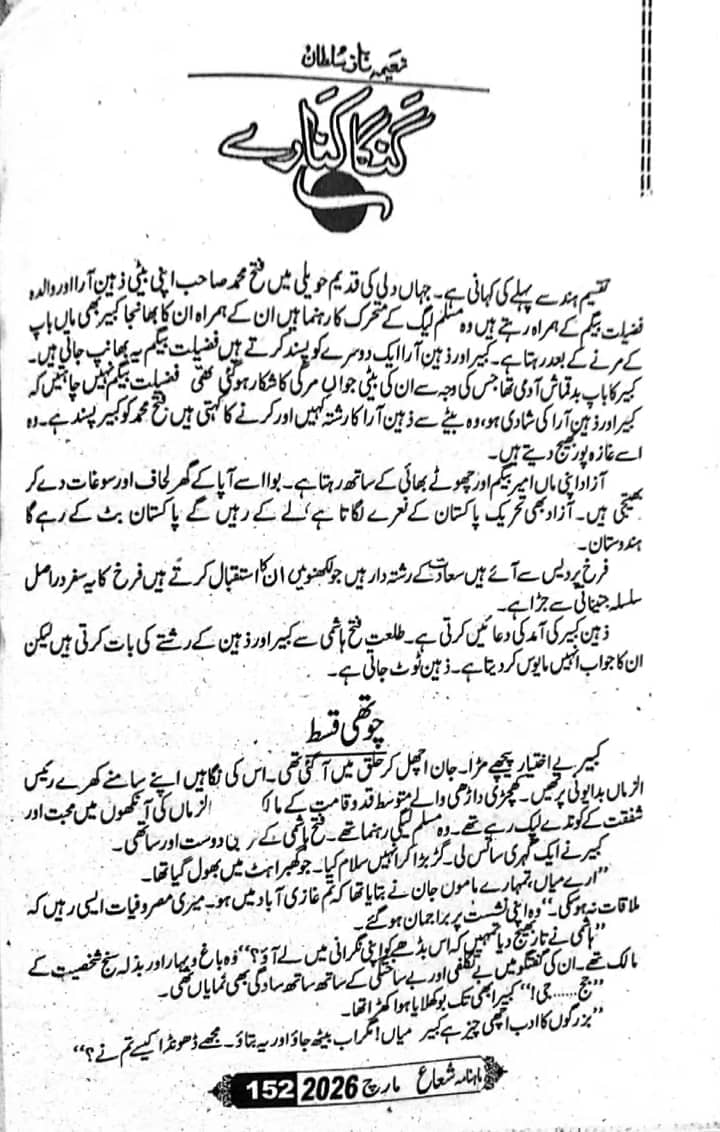 نعیمہ ناز سلطان
گنگا کنارے
تقسیم ہند سے پہلے کی کہانی ہے۔ جہاں دلی کی قدیم حویلی میں فتح محمد صاحب اپنی بیٹی ذہین آرا اور والدہ
فضیلت بیگم کے ہمراہ رہتے ہیں وہ مسلم لیگ کے متحرک کا رہنما ہیں ان کے ہمراہ ان کا بھانجا کبیر بھی ماں باپ
کے مرنے کے بعد رہتا ہے۔ کبیر اور ذہین آرا ایک دوسرے کو پسند کرتے ہیں فضیلت بیگم یہ بھانپ جاتی ہیں۔
کبیر کا باپ بد قماش آدمی تھا جس کی وجہ سے ان کی بیٹی جواں مرگی کا شکار ہو گئی تھی فضیلت بیگم نہیں چاہتیں کہ
کبیر اور ذہین آرا کی شادی ہو، وہ بیٹے سے ذہین آرا کا رشتہ کہیں اور کرنے کا کہتی ہیں فتح محمد کو کبیر پسند ہے۔ وہ
اسے غازہ پور بھیج دیتے ہیں۔
آزاد اپنی ماں امیر بیگم اور چھوٹے بھائی کے ساتھ رہتا ہے۔ بوا اسے آپا کے گھر لحاف اور سوغات دے کر
بھیجتی ہیں۔ آزاد بھی تحریک پاکستان کے نعرے لگاتا ہے ٗ لے کے رہیں گے پاکستان بٹ کے رہے گا
ہندوستان۔
فرخ پردیس سے آئے ہیں سعادت کے رشتہ دار ہیں جو لکھنو میں ان کا استقبال کرتے ہیں فرخ کا یہ سفر دراصل
سلسلہ جنبانی سے جڑا ہے۔
ذہین کبیر کی آمد کی دعائیں کرتی ہے۔ طلعت فتح ہاشمی سے کبیر اور ذہین کے رشتے کی بات کرتی ہیں لیکن
ان کا جواب انہیں مایوس کر دیتا ہے۔ ذہین ٹوٹ جاتی ہے۔
چوتھی قسط
کبیر بے اختیار پیچھے مڑا۔ جان اچھل کر حلق میں آ گئی تھی۔ اس کی نگاہیں اپنے سامنے کھڑے رئیس
الزماں بدایونی پر تھیں۔ کھچڑی داڑھی والے متوسط قد و قامت کے الزماں کی آنکھوں میں محبت اور
شفقت کے کوندے لپک رہے تھے۔ وہ مسلم لیگی رہنما تھے۔ فتح ہاشمی کے دوست اور ساتھی۔
کبیر نے ایک گہری سانس لی۔ گڑبڑا کر انہیں سلام کیا۔ جو گھبراہٹ میں بھول گیا تھا۔
”ارے میاں، تمہارے ماموں جان نے بتایا تھا کہ تم غازی آباد میں ہو۔ میری مصروفیات ایسی رہیں کہ
ملاقات نہ ہو سکی۔“ وہ اپنی نشست پر براجمان ہو گئے۔
”ہاشمی نے تار بھیج دیا تمہیں کہ اس بڈھے کو اپنی نگرانی میں لے آؤ؟“ وہ باغ و بہار اور بذلہ سنج شخصیت کے
مالک تھے۔ ان کی گفتگو میں بے تکلفی اور بے ساختگی کے ساتھ ساتھ سادگی بھی نمایاں تھی۔
”جج...... جی!“ کبیر ابھی تک بوکھلایا ہوا کھڑا تھا۔
”بزرگوں کا ادب اچھی چیز ہے کبیر میاں! مگر اب بیٹھ جاؤ اور یہ بتاؤ۔ مجھے ڈھونڈا کیسے تم نے؟“
ماہنامہ شعاع مارچ 2026 152